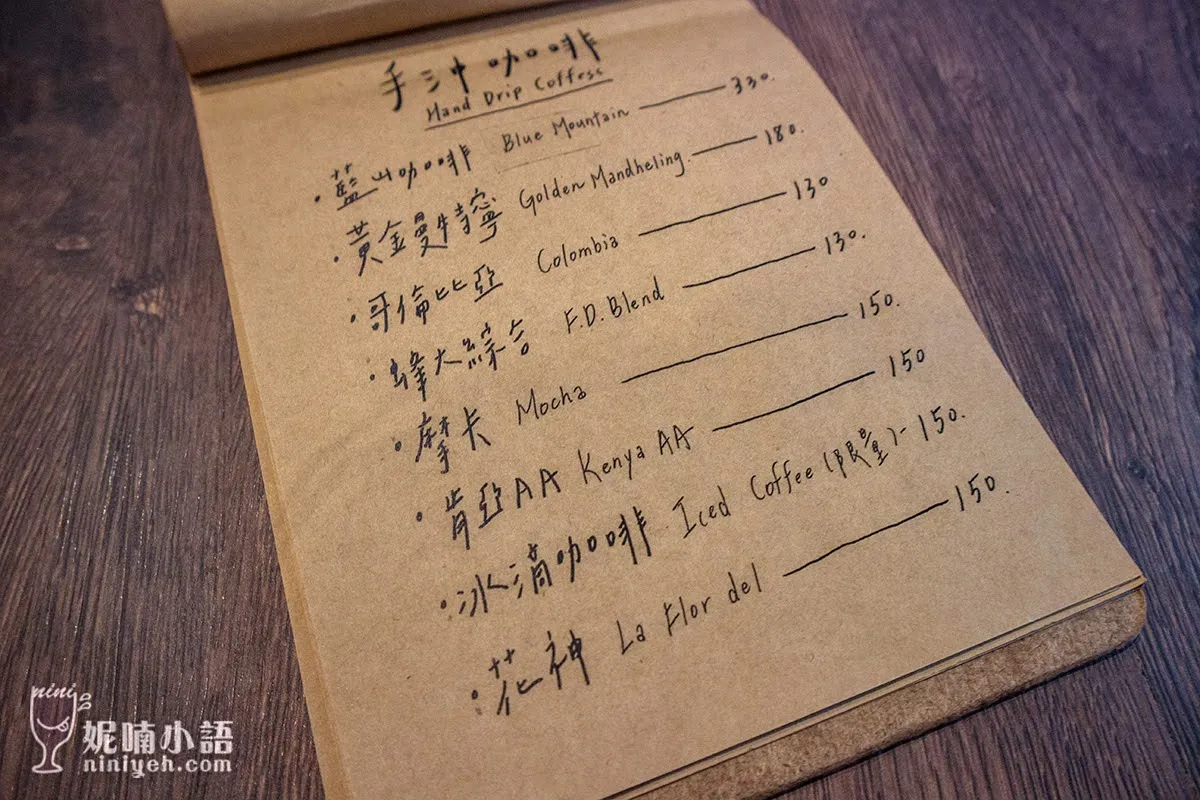 手沖咖啡
Hand Drip Coffess
·藍山咖啡 Blue Mountain — 330.
·黃金曼特寧 Golden Mandheling. — 180.
·哥倫比亞 Colombia — 130
·蜂大綜合 F.D. Blend — 130.
·摩卡 Mocha — 150.
·肯亞AA Kenya AA — 150
·冰滴咖啡 Iced Coffee (限量)- 150.
·花神 La Flor del — 150.
nini
妮喃小語
niniyeh.com